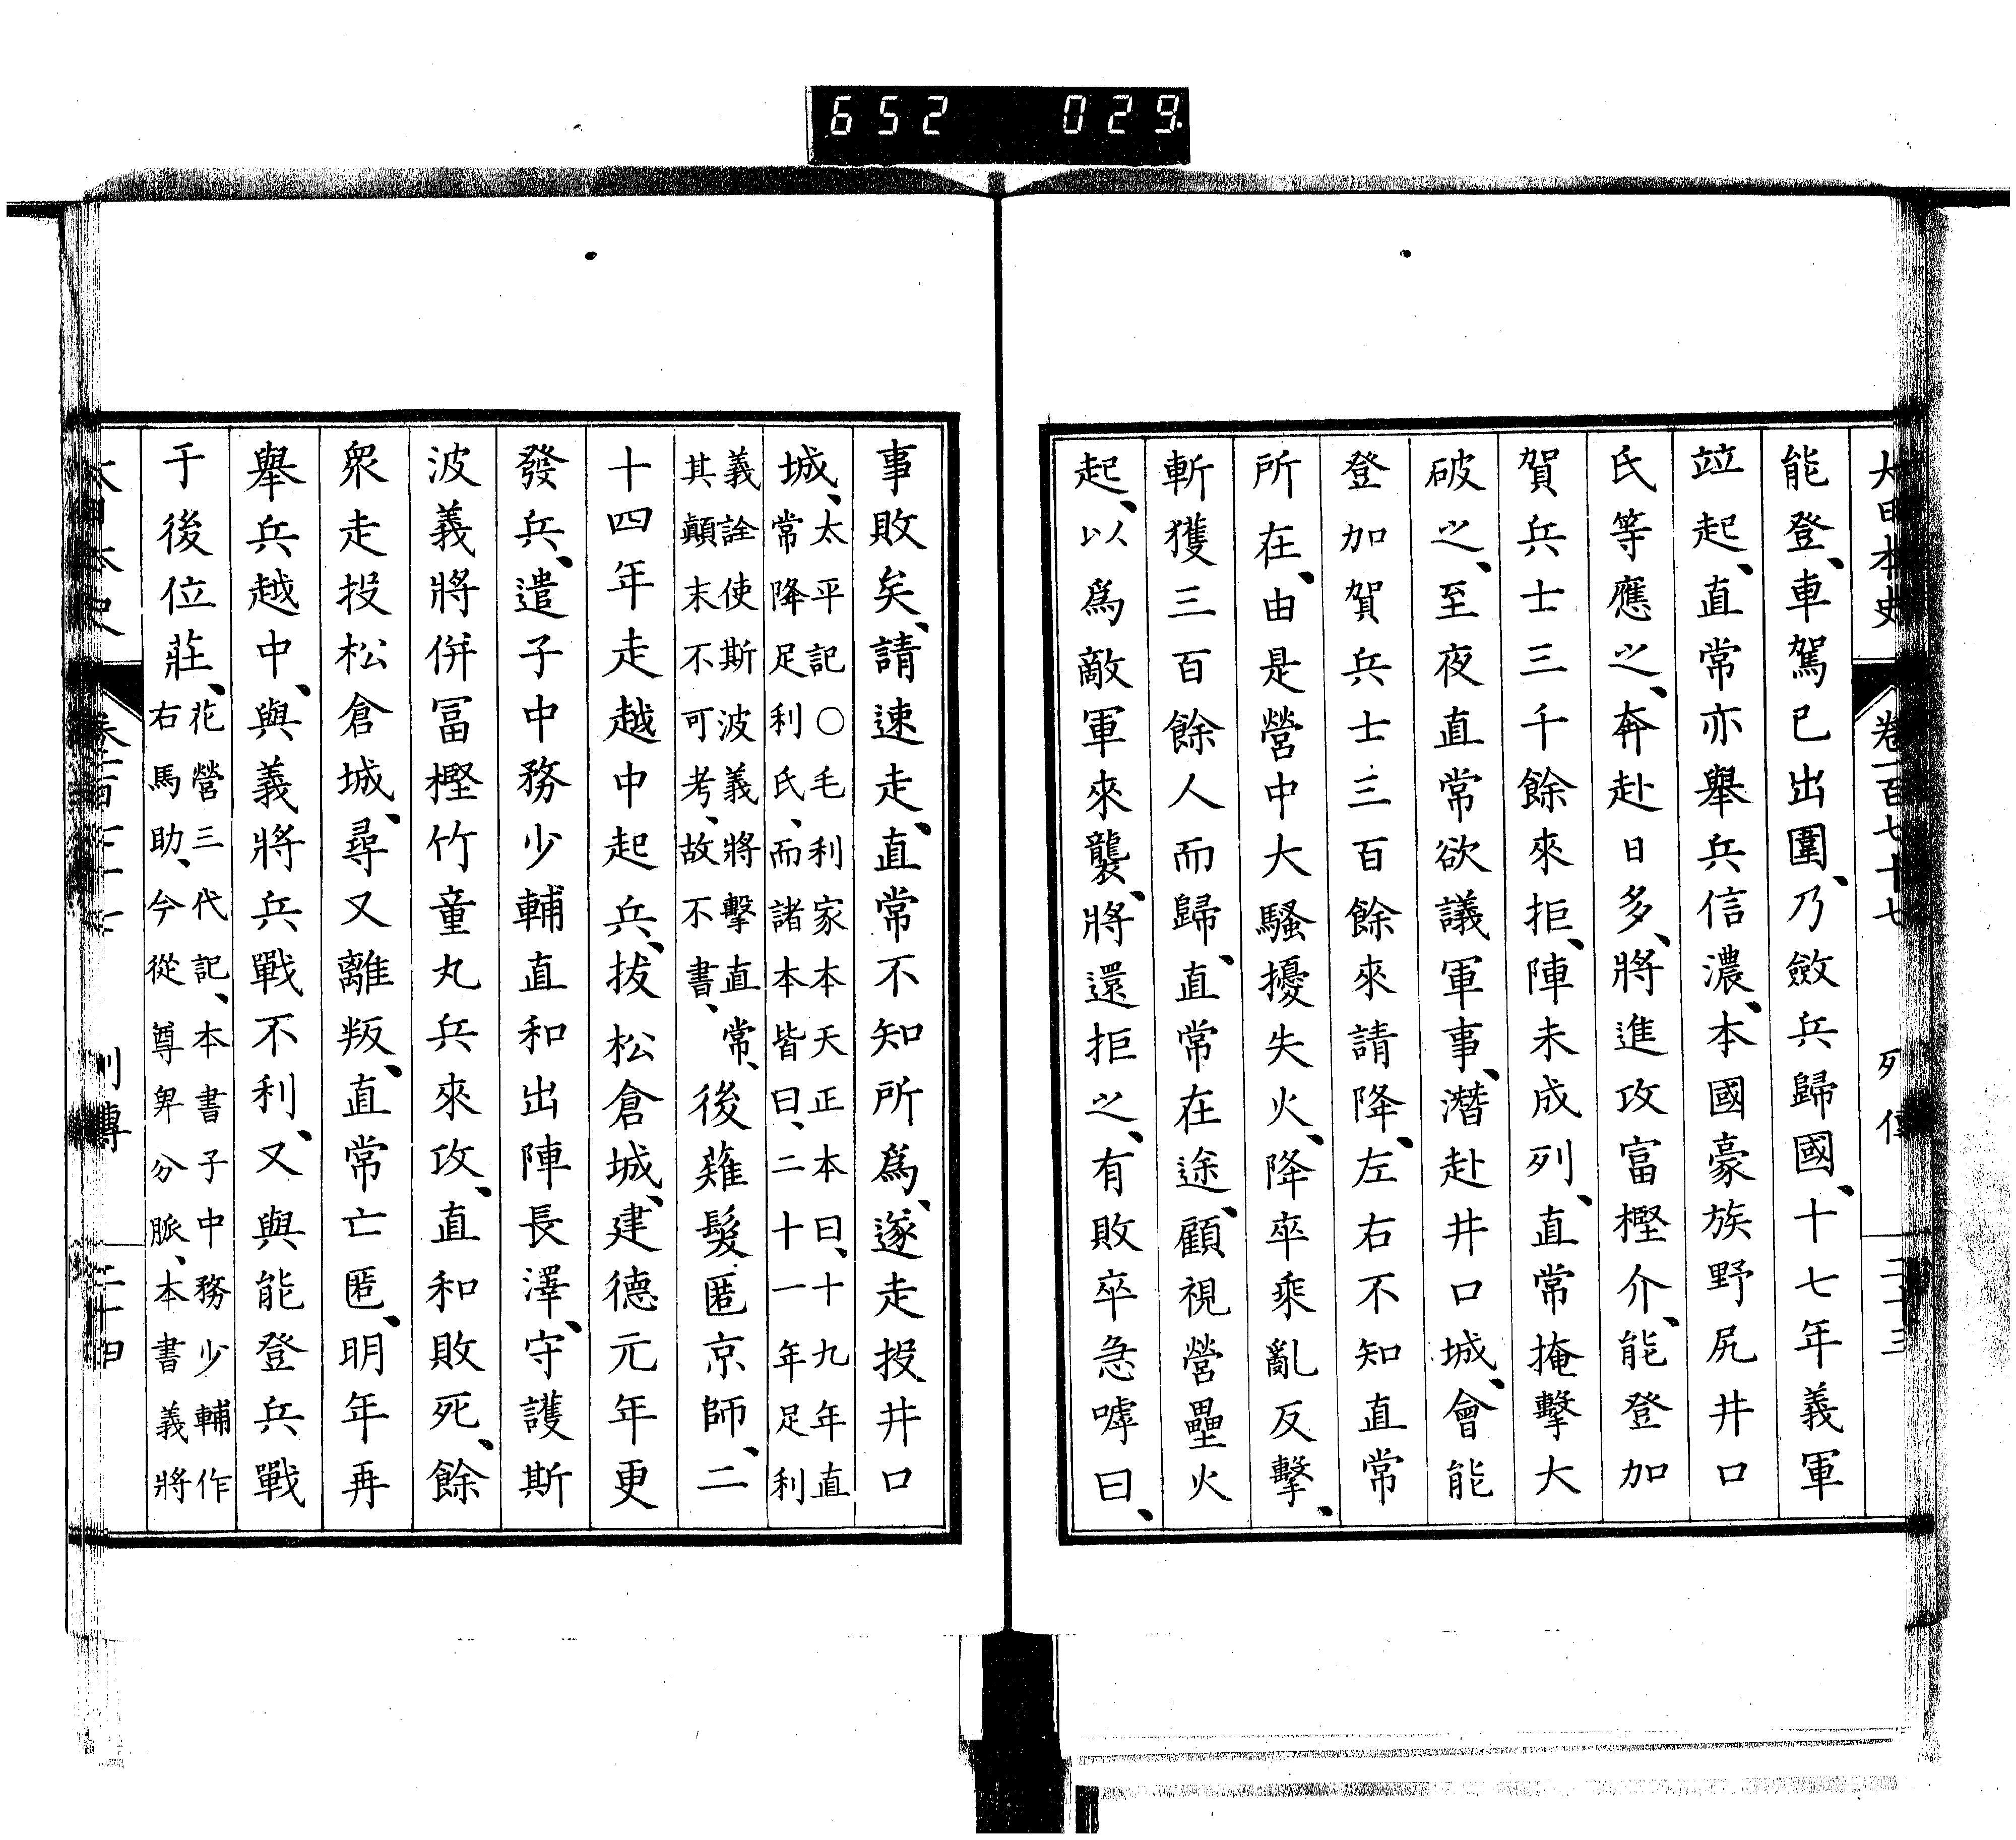 652 029
大日本史 卷一百七十七 列傳 二十三
能登、車駕已出圍、乃斂兵歸國、十七年義軍
竝起、直常亦舉兵信濃、本國豪族野尻井口
氏等應之、奔赴日多、將進攻富樫介、能登加
賀兵士三千餘來拒、陣未成列、直常掩擊大
破之、至夜直常欲議軍事、潛赴井口城、會能
登加賀兵士三百餘來請降、左右不知直常
所在、由是營中大騷擾失火、降卒乘亂反擊、
斬獲三百餘人而歸、直常在途、顧視營壘火
起、以爲敵軍來襲、將還拒之、有敗卒急嘑曰、
事敗矣、請速走、直常不知所爲、遂走投井口
城、太平記○毛利家本天正本曰、十九年直
常降足利氏、而諸本皆曰、二十一年足利
義詮使斯波義將擊直常、
其顚末不可考、故不書、後薙髮匿京師、二
十四年走越中起兵、拔松倉城、建德元年更
發兵、遣子中務少輔直和出陣長澤、守護斯
波義將併冨樫竹童丸兵來攻、直和敗死、餘
衆走投松倉城、尋又離叛、直常亡匿、明年再
舉兵越中、與義將兵戰不利、又與能登兵戰
于後位莊、花營三代記、本書子中務少輔作
右馬助、今從尊卑分脈、本書義將
大日本史 列傳